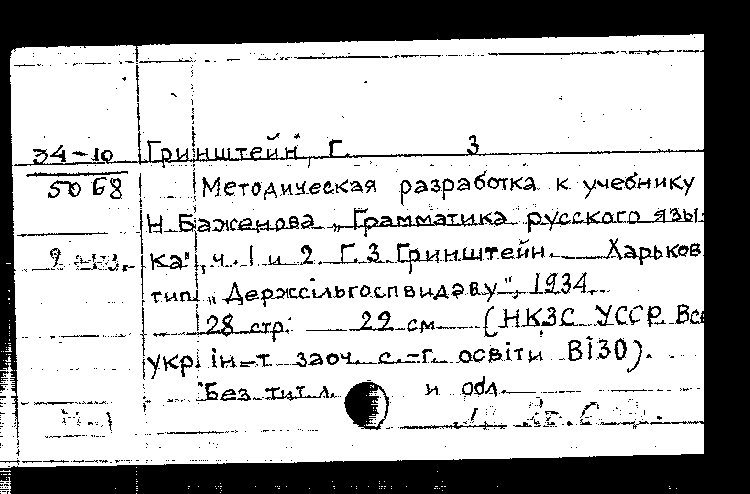 34-10 Гринштейн, Г. 3
5068 Методическая разработка к учебнику
Н. Баженова „Грамматика русского язы-
2 экз. ка", ч. 1 и 2. Г. З. Гринштейн. Харьков
тип. „Держсільгоспвидаву", 1934.
28 стр. 22 см (НКЗС УССР. Все
укр. ін-т заоч. с.-г. освіти ВІЗО).
Без тит. л. и обл.